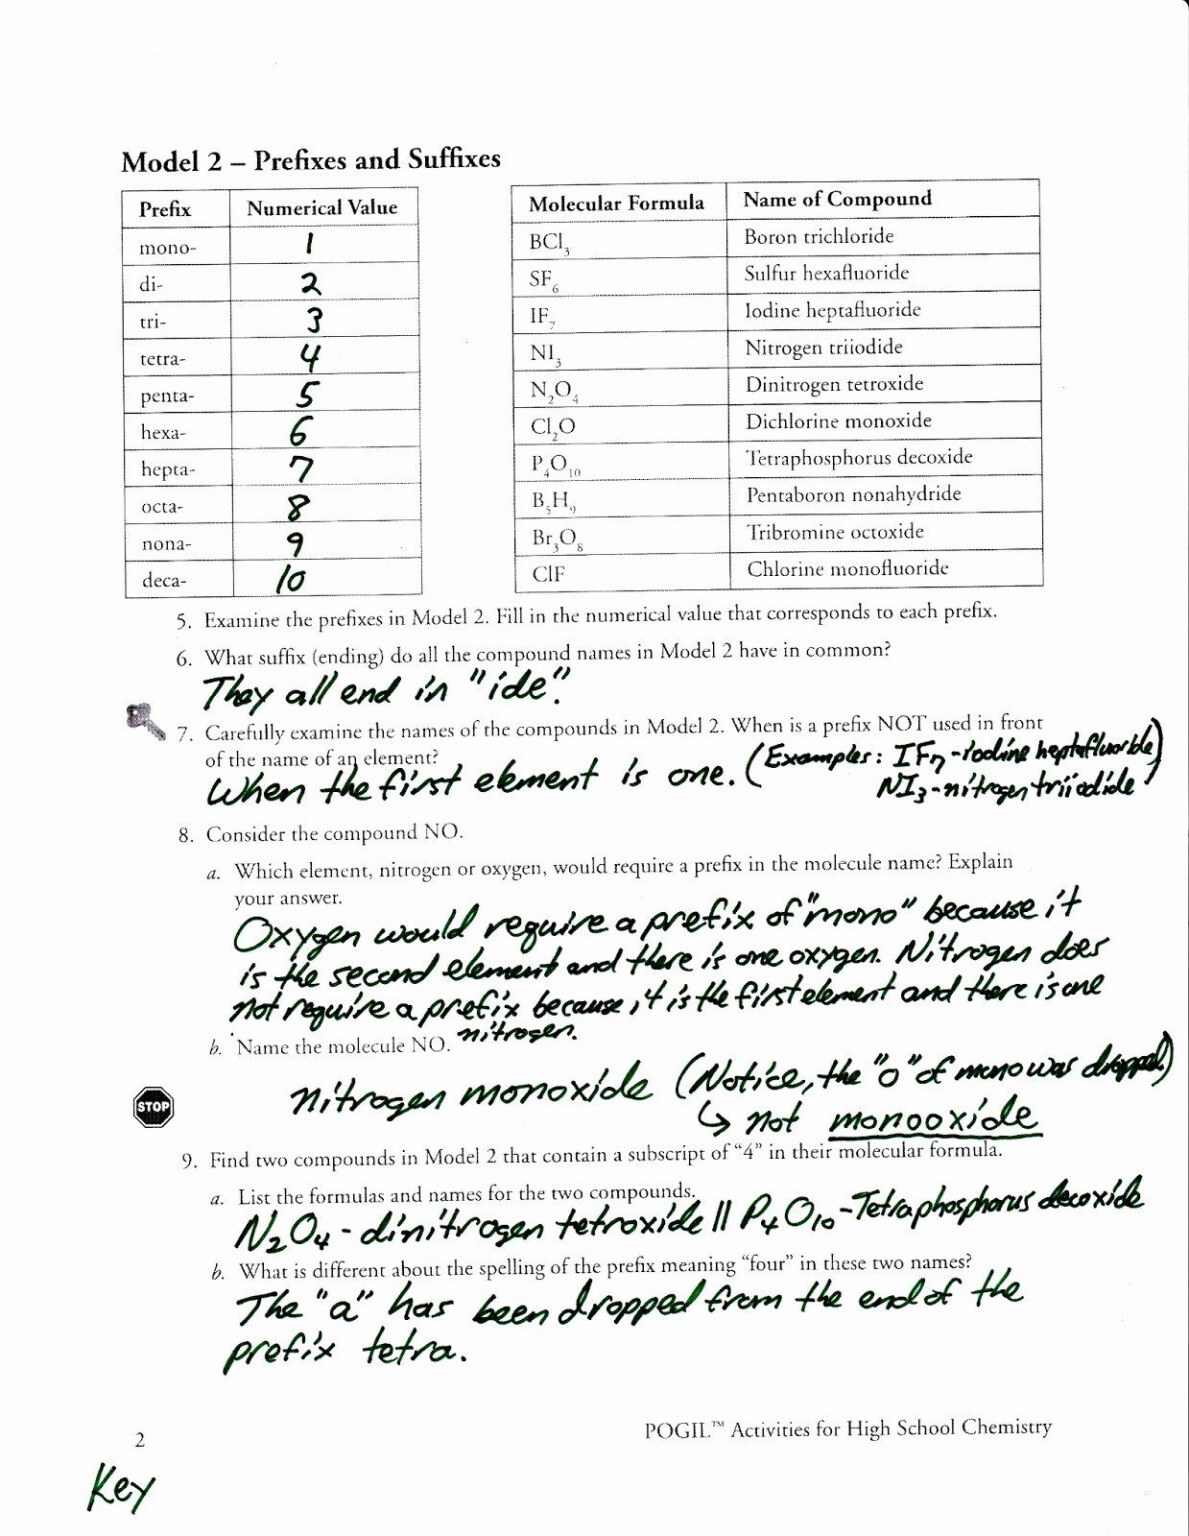 Model 2 – Prefixes and Suffixes
Prefix Numerical Value
mono- 1
di- 2
tri- 3
tetra- 4
penta- 5
hexa- 6
hepta- 7
octa- 8
nona- 9
deca- 10
Molecular Formula Name of Compound
BCl₃ Boron trichloride
SF₆ Sulfur hexafluoride
IF₇ Iodine heptafluoride
NI₃ Nitrogen triiodide
N₂O₄ Dinitrogen tetroxide
Cl₂O Dichlorine monoxide
P₄O₁₀ Tetraphosphorus decoxide
B₅H₉ Pentaboron nonahydride
Br₃O₈ Tribromine octoxide
ClF Chlorine monofluoride
5. Examine the prefixes in Model 2. Fill in the numerical value that corresponds to each prefix.
6. What suffix (ending) do all the compound names in Model 2 have in common?
They all end in "ide".
7. Carefully examine the names of the compounds in Model 2. When is a prefix NOT used in front
of the name of an element?
When the first element is one. (Examples: IF₇-Iodine heptafluoride)
NI₃-nitrogen triiodide
8. Consider the compound NO.
a. Which element, nitrogen or oxygen, would require a prefix in the molecule name? Explain
your answer.
Oxygen would require a prefix of "mono" because it
is the second element and there is one oxygen. Nitrogen does
not require a prefix because it is the first element and there is one
nitrogen.
b. Name the molecule NO.
nitrogen monoxide (Notice, the "o" of mono was dropped.)
↳ not monooxide
STOP
9. Find two compounds in Model 2 that contain a subscript of “4” in their molecular formula.
a. List the formulas and names for the two compounds.
N₂O₄ - dinitrogen tetroxide || P₄O₁₀-Tetraphosphorus decoxide
b. What is different about the spelling of the prefix meaning “four” in these two names?
The "a" has been dropped from the end of the
prefix tetra.
2
POGIL™ Activities for High School Chemistry
Key